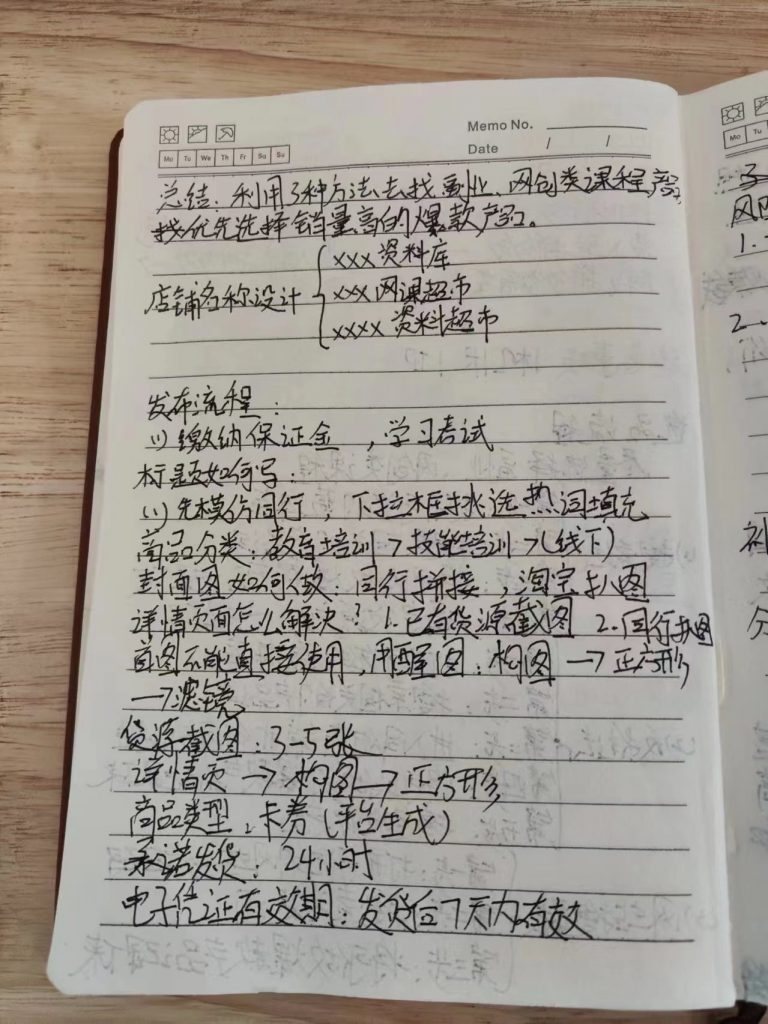 Memo No.
Date / /
Mo Tu We Th Fr Sa Su
总结：利用3种方法去找副业、网创类课程,产品
找优先选择销量高的爆款产品。
店铺名称设计
xxx资料库
xxx网课超市
xxxx资料超市
发布流程：
(1)缴纳保证金，学习考试
标题如何写：
(1)先模仿同行，下拉框挑选热词填充
商品分类：教育培训>技能培训>(线下)
封面图如何做：同行拼接，淘宝扒图
详情页面怎么解决？1.已有货源截图 2.同行扒图
首图不能直接使用，用醒图：构图→正方形
→滤镜
货源截图：3-5张
详情页→构图→正方形
商品类型：卡券(平台生成)
承诺发货：24小时
电子凭证有效期：发货后7天内有效
Mo Tu
1.
2.
补
分